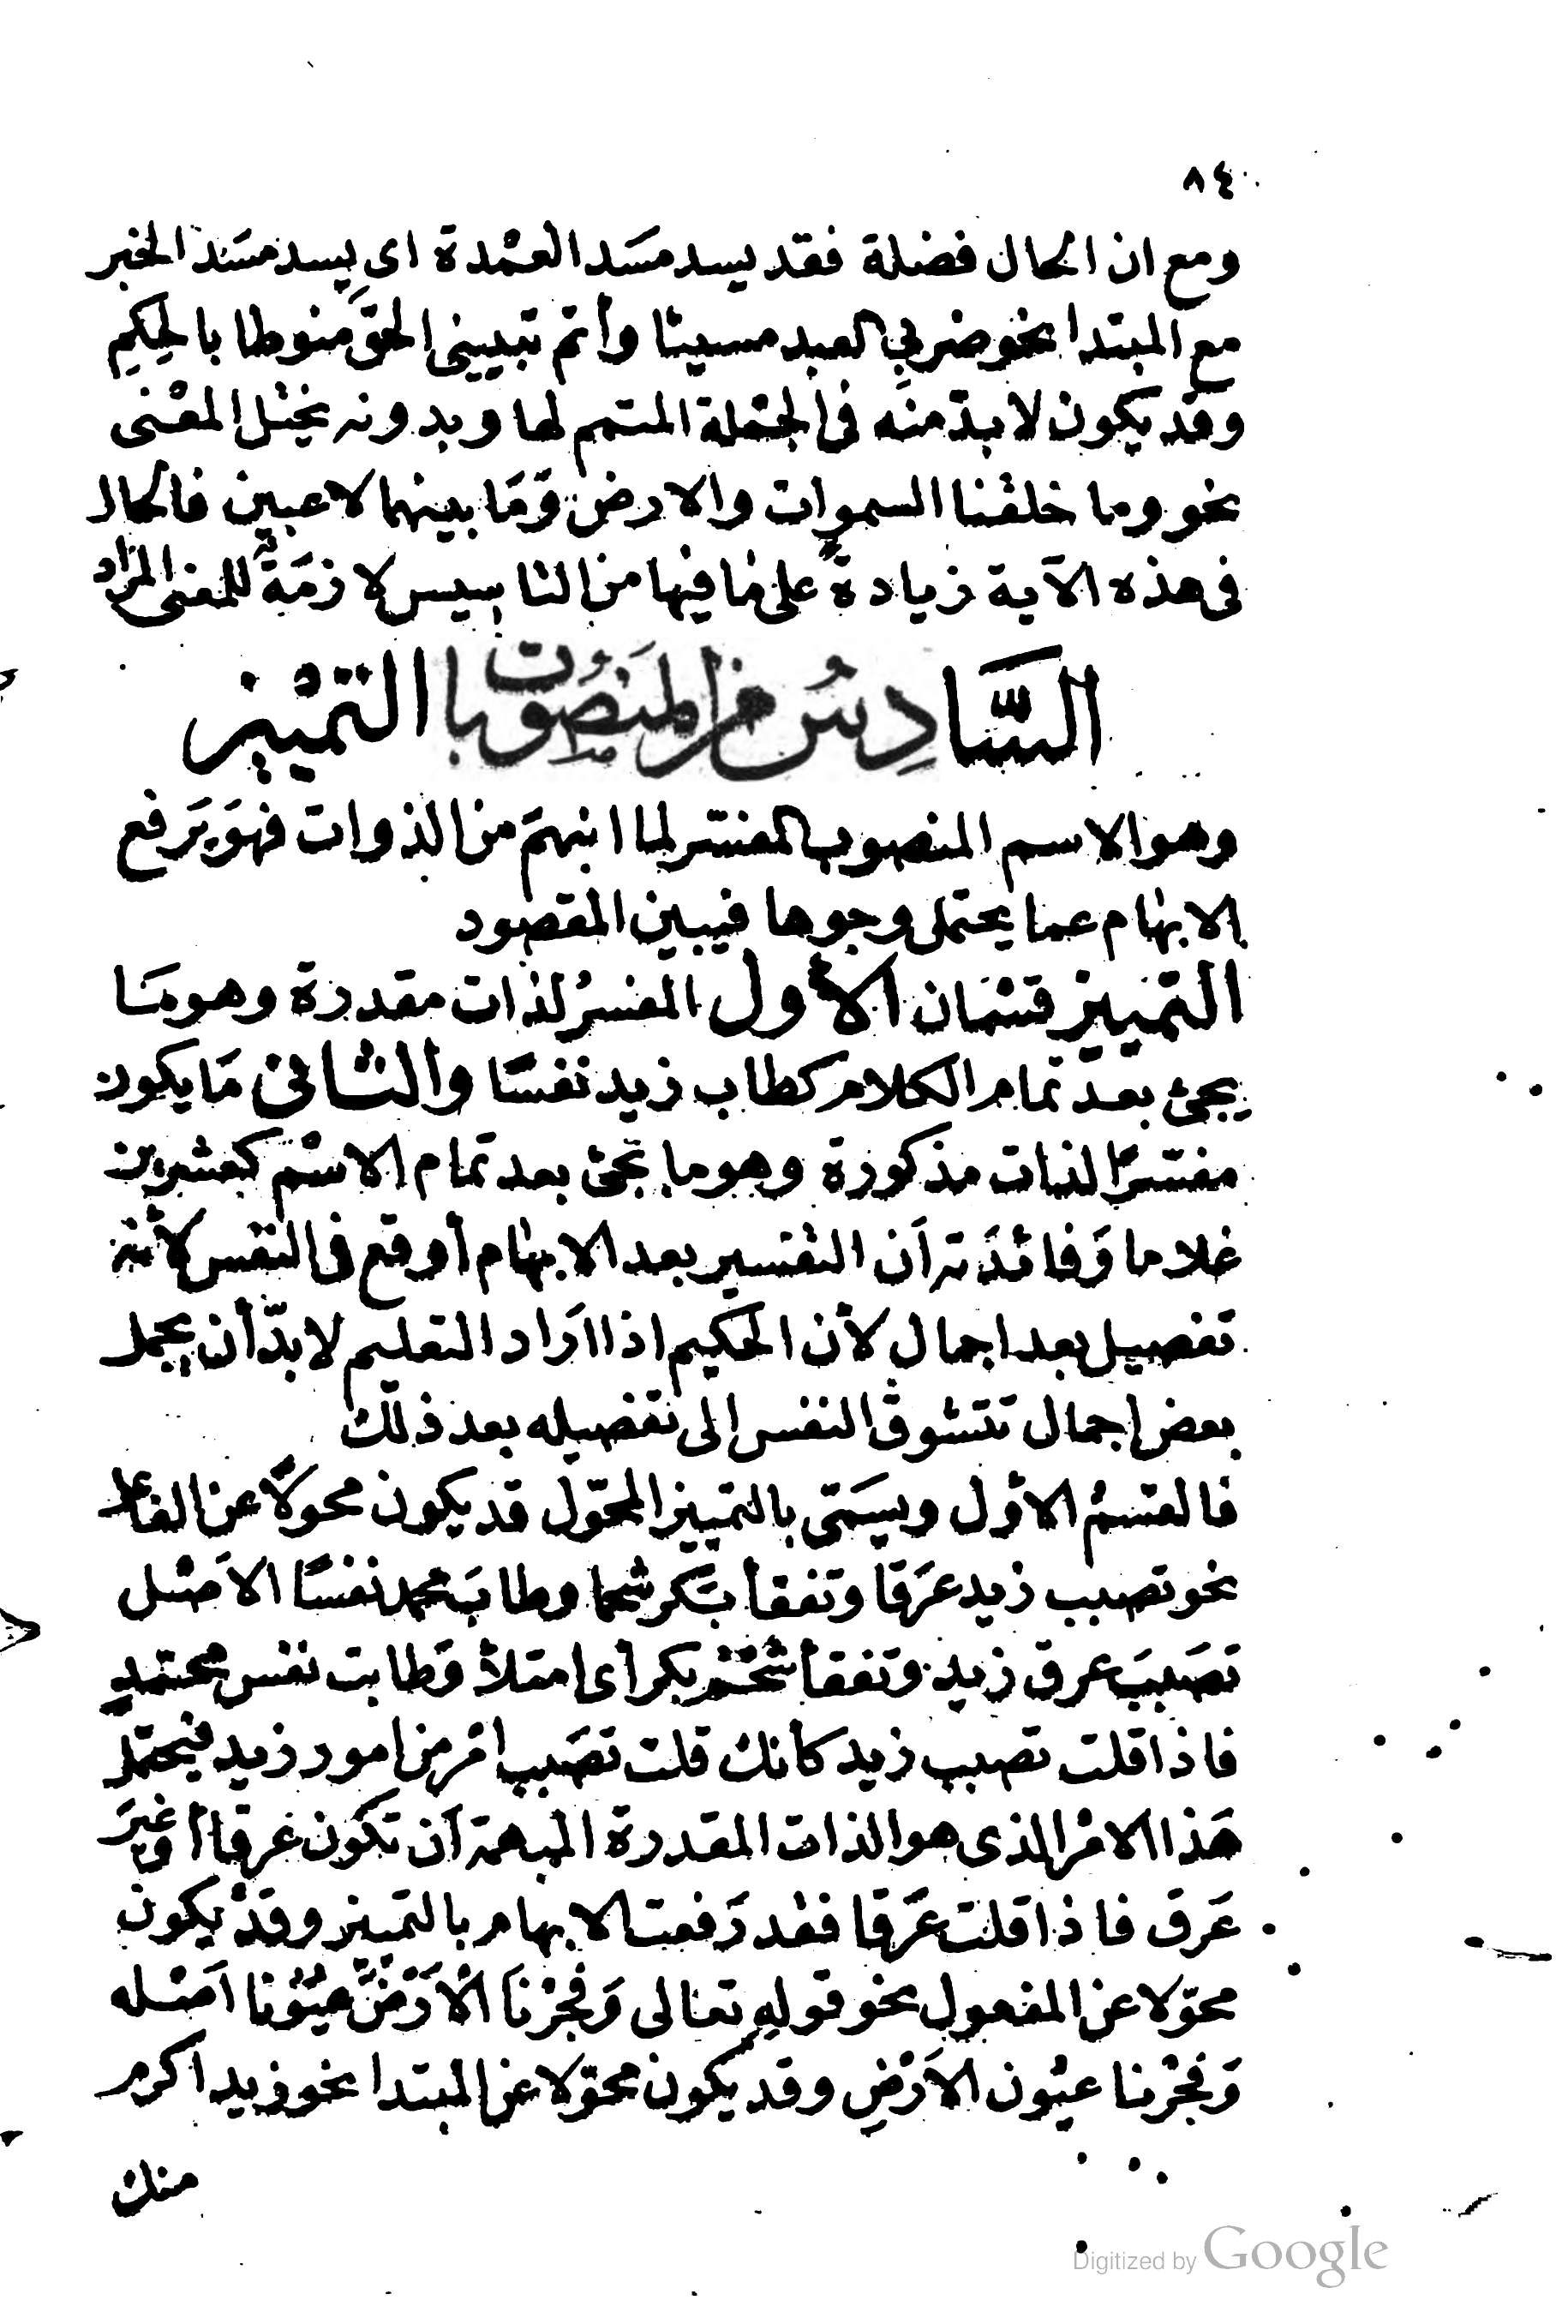 ٨٤
ومع ان الحال فضلة فقد يسد مسَد العمْدة اى يسد مسَد الخبر
مع المبتدا نحو ضربي العبد مسيئا وأتم تبييني الحقَّ منوطا بالحِكَمِ
وقد يكون لا بدّ منه فى الجمْلة المتمم لها وبدونه يختل المعْنى
نحو وما خلقْنا السموات والارض وَمَا بينهما لاعبين فالحال
فى هذه الآية زيادةً على مَا فيها من التاسيس لازمَةٌ للمعنى المرَاد
السَّادِسُ من المَنصُوبات التمْييز
وهو الاسم المنصوب المفسّر لما انبهمَ من الذوات فهوَ يَرفع
الابهام عما يحتمل وجوها فيبين المقصود
التمييز قسْمَان الأول المفسرُ لذات مقدرة وهو مَا
يجئ بعد تمام الكلام كطاب زيد نفسًا والثانى مَا يكون
مفسّرًا لذات مذكورة وهو ما يجئ بعد تمام الاسْم كعشرين
غلاما وَفائدَته اَن التفسير بعد الابهام أوقع فى النفس لأنه
تفصيل بعد اجمال لأن الحكيم اذا اَراد التعليم لا بدّ أن يجمل
بعض اجمال تتشوق النفس الى تفصيله بعد ذلك
فالقسمُ الاوّل ويسَمّى بالتمييز المحوّل قد يكون محولاً عن الفاعل
نحو تصبب زيد عرَقا وتفقأ بَكر شحما وطابَ محمد نفسًا الاَصْل
تصَببَ عرق زيد وتفقأ شَحْم بكر أى امتلأ وَطابت نفس محمّدٍ
فاذا قلت تصبب زيد كأنك قلت تصَبب امْر من امور زيد فيحتمل
هَذا الامْر الذى هو الذات المقدرة المبهمة اَن تكون عرقا أو غيرَ
عَرق فاذا قلت عَرَقا فقد رَفعت الابهام بالتمييز وقدْ يكون
محوّلا عن المفعول نحو قولهِ تعالى وَفجَّرْنَا الْاَرْضَ عيُوْنا اَصْله
وَفجّرْنا عيُون الاَرْضِ وقد يكون محوّلا عن المبتدا نحو زيد اكرم
منك
Digitized by Google